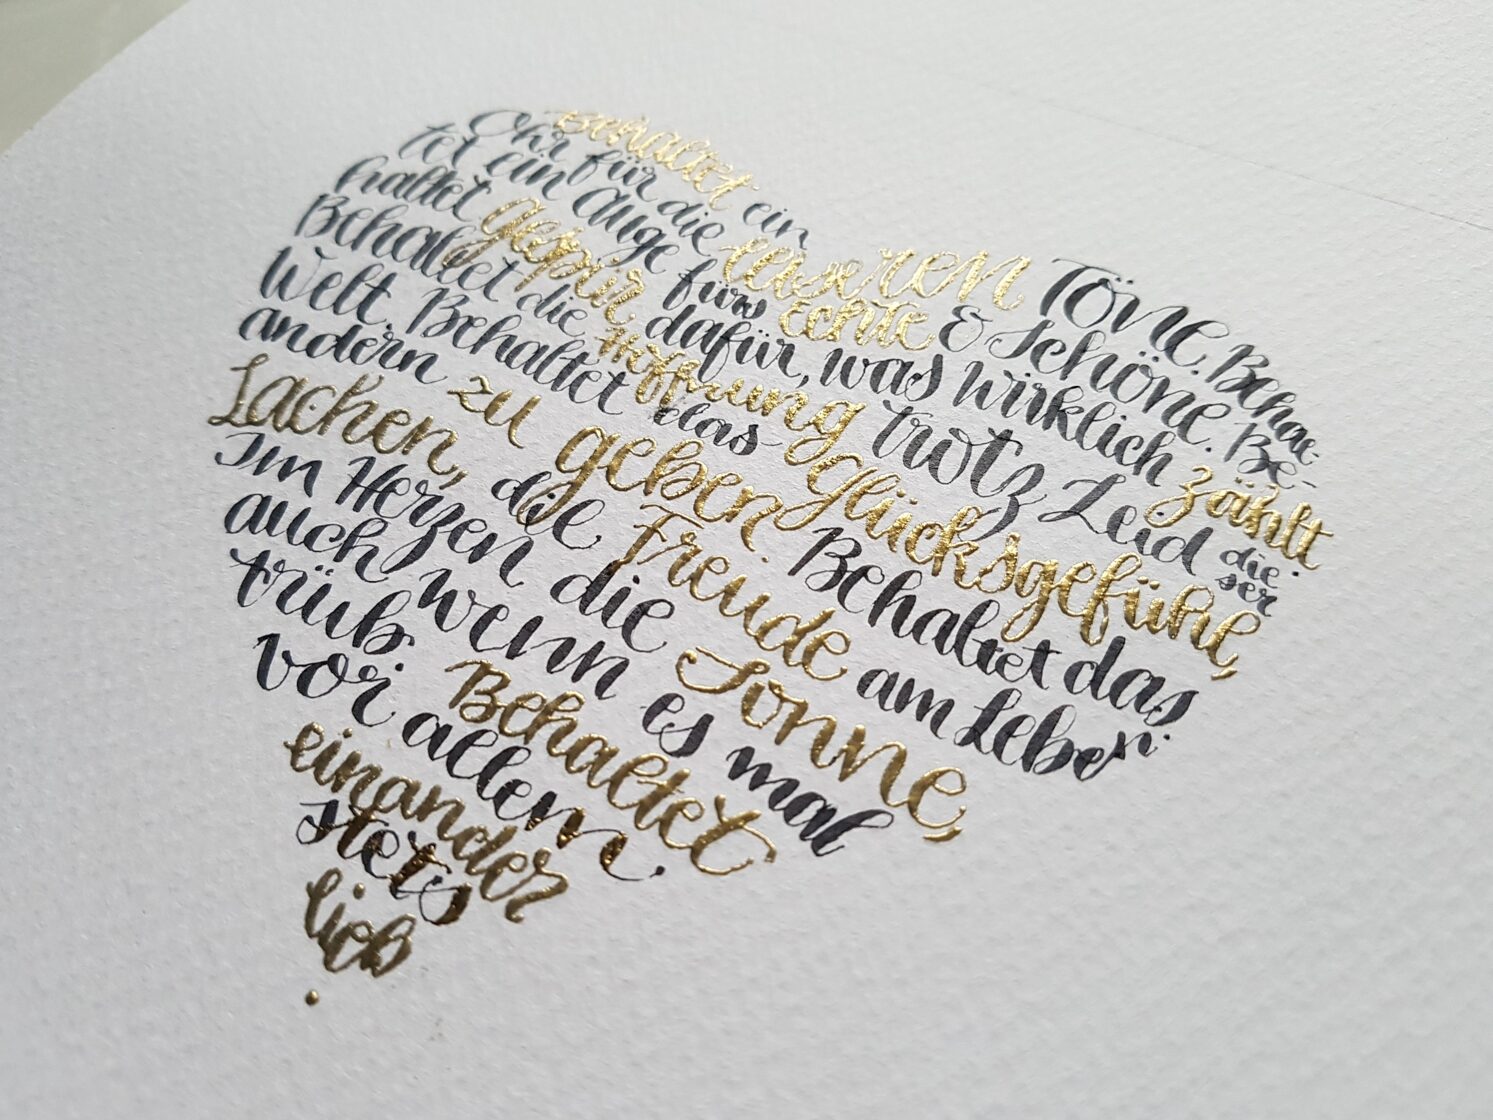 Behaltet ein
Ohr für die leiseren Töne. Behal-
tet ein Auge fürs Echte & Schöne. Be-
haltet gespür dafür, was wirklich zählt.
Behaltet die Hoffnung trotz Leid dieser
Welt. Behaltet das glücksgefühl,
andern zu geben. Behaltet das
Lachen, die Freude am Leben.
Im Herzen die Sonne,
auch wenn es mal
trüb. Behaltet
vor allem.
einander
stets
lieb
.